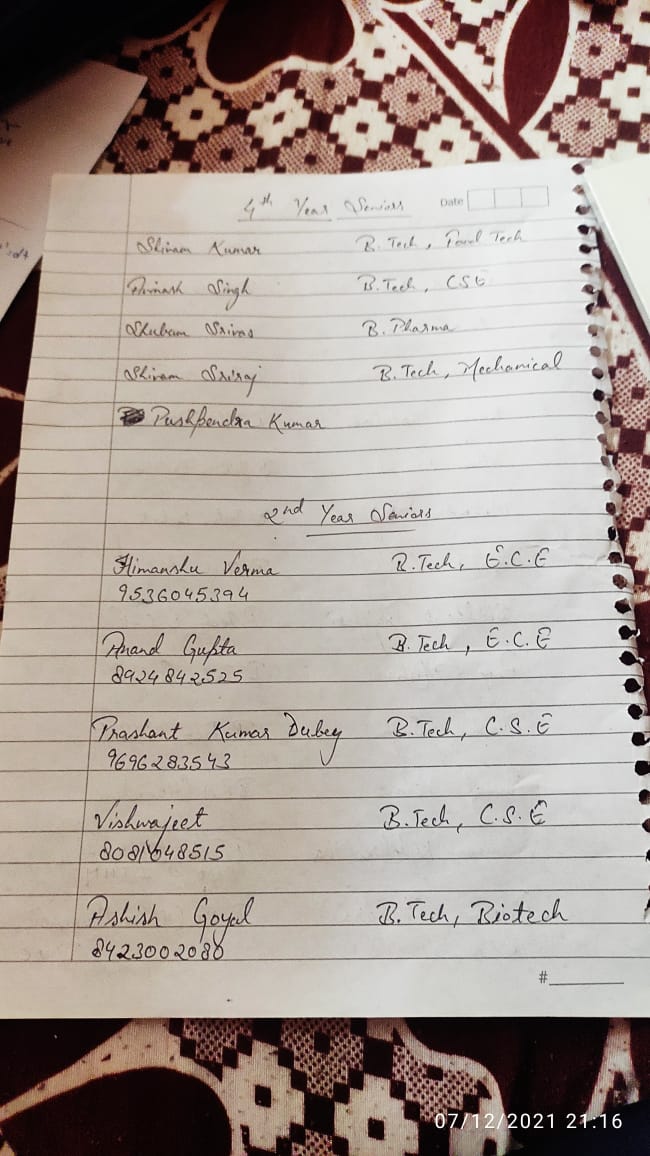 4th Year Seniors
Date
Shivam Kumar B. Tech, Food Tech
Avinash Singh B.Tech, CSE
Shubam Srivas B. Pharma
Shivam B. Tech, Mechanical
Pushpendra Kumar
2nd Year Seniors
Himanshu Verma B.Tech, E.C.E
9536045394
Anand Gupta B.Tech, E.C.E
8924842525
Prashant Kumar Dubey B.Tech, C.S.E
9696283543
Vishwajeet B.Tech, C.S.E
Ashish Goyal B.Tech, Biotech
8423002080
#
07/12/2021 21:16